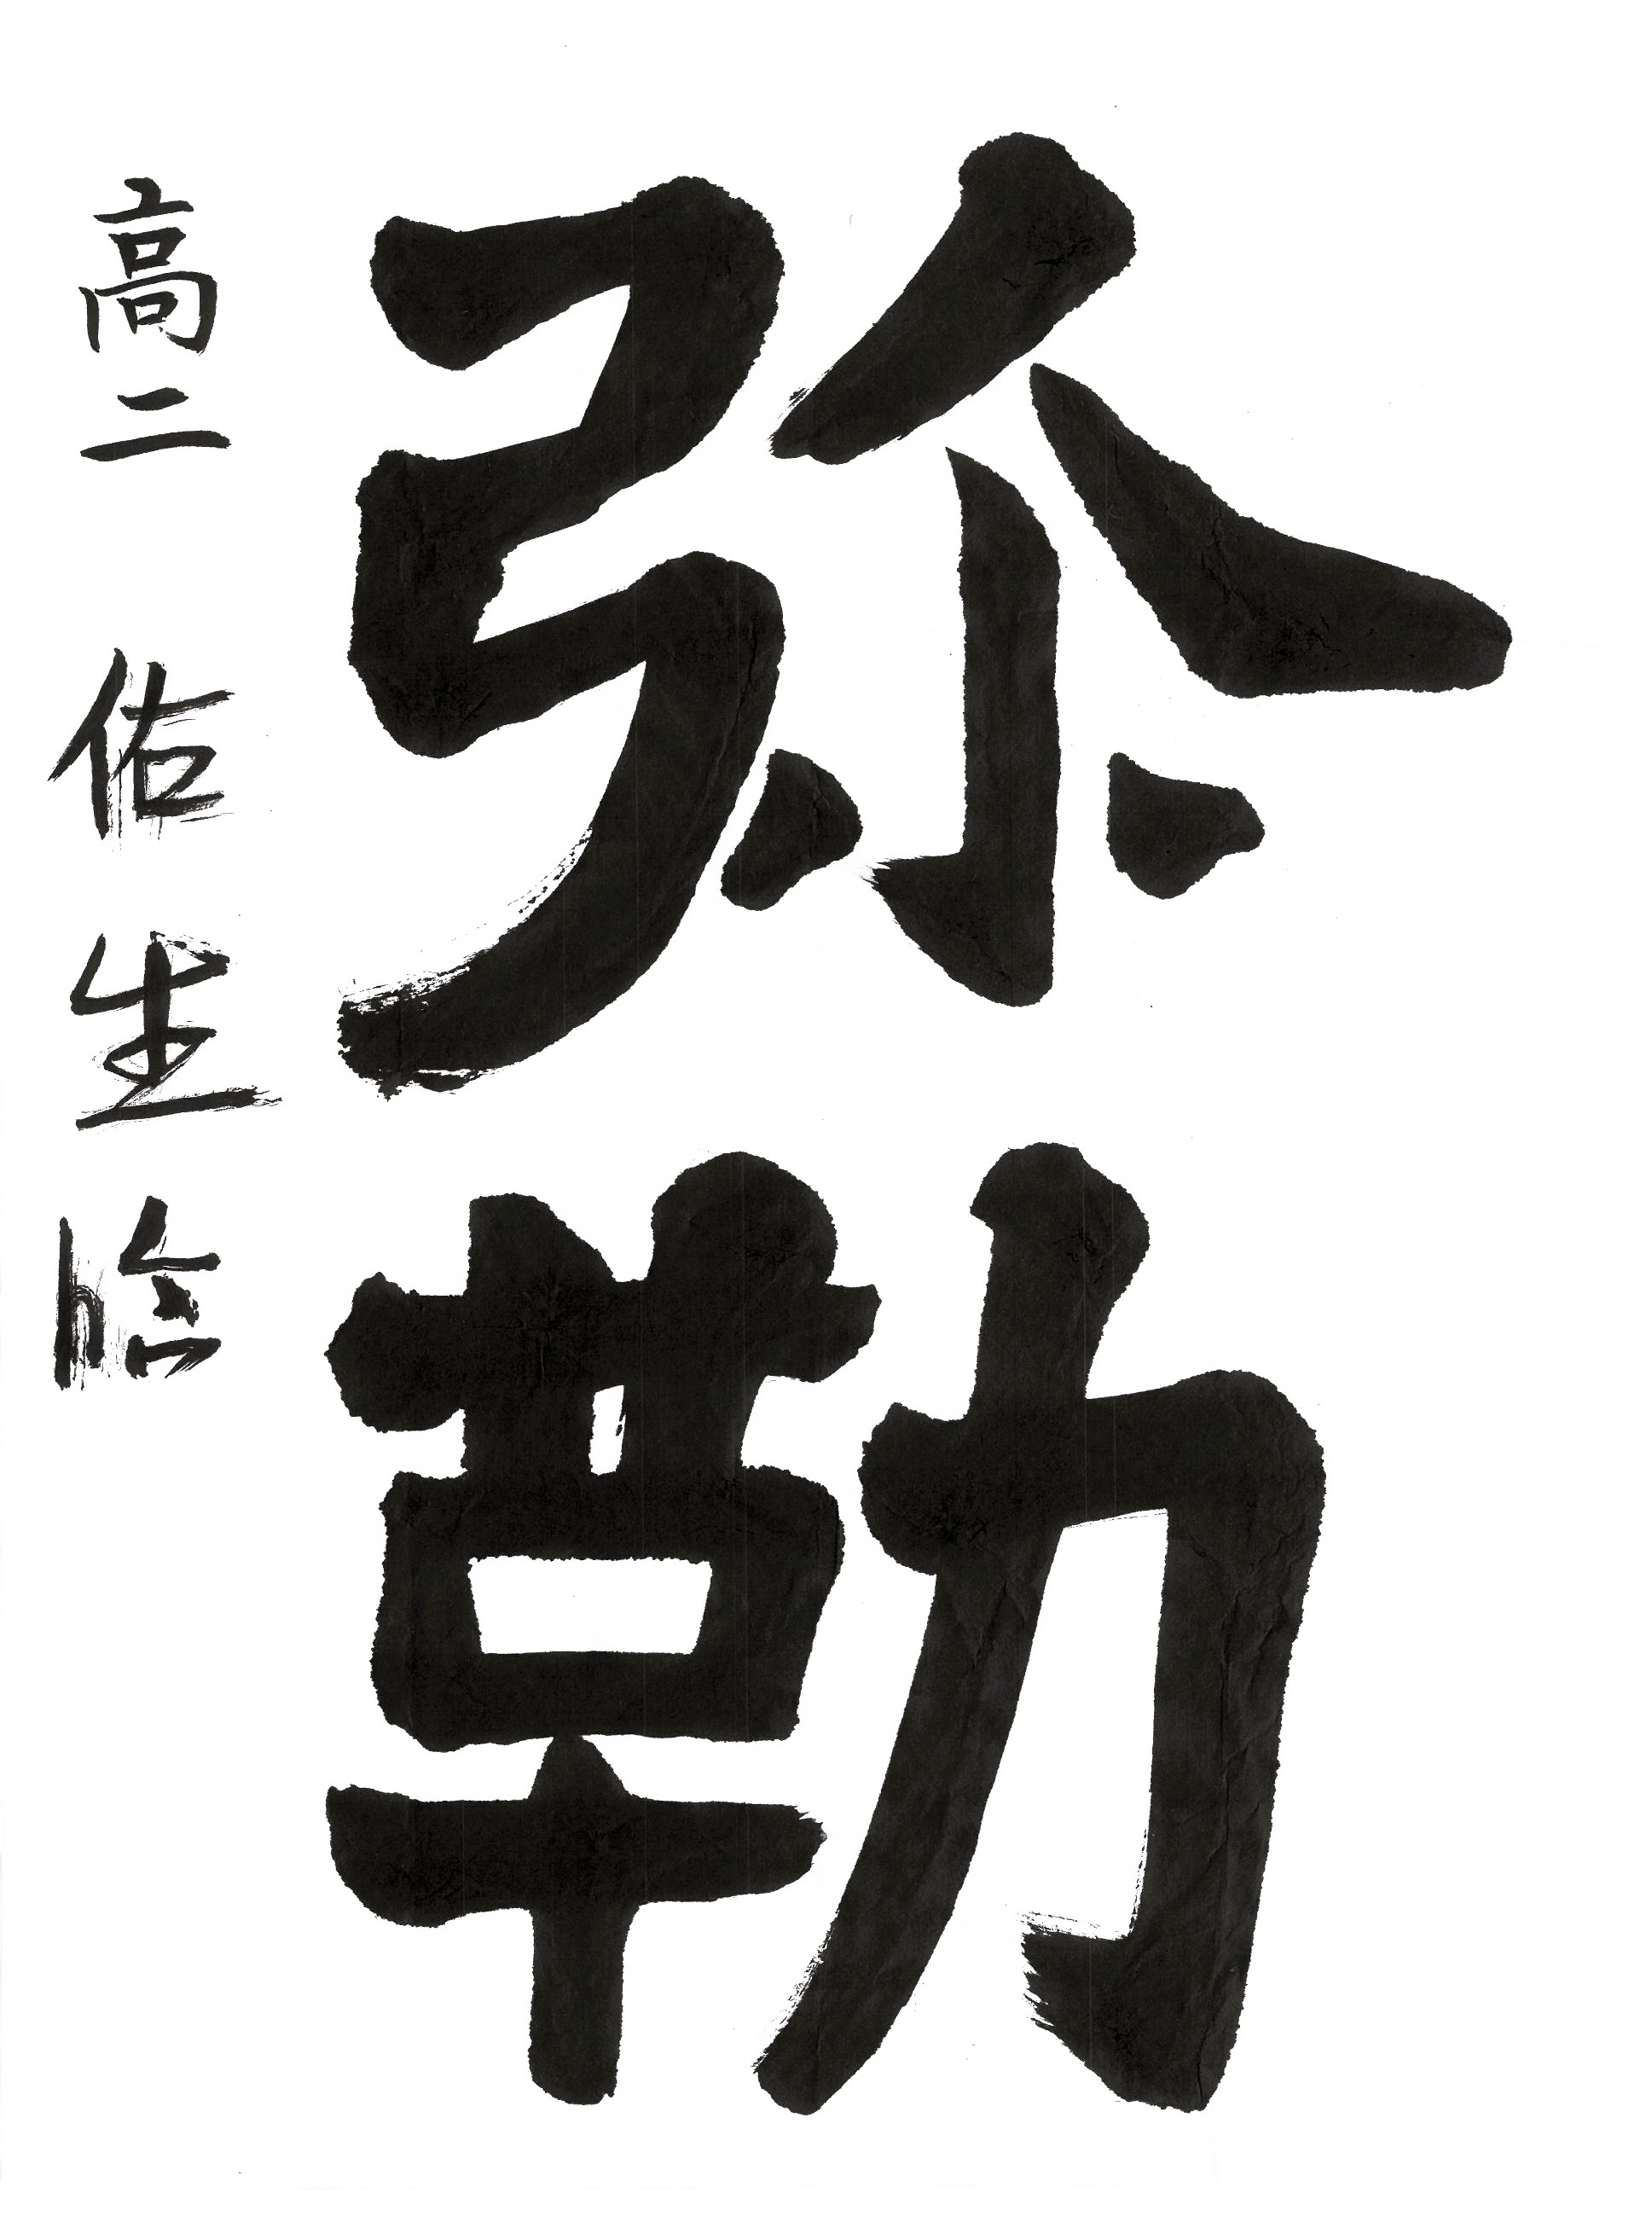 弥勒
高二 佑生臨